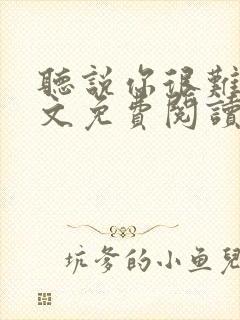 聽説你很難
文免費閱讀
坑爹的小鱼兒